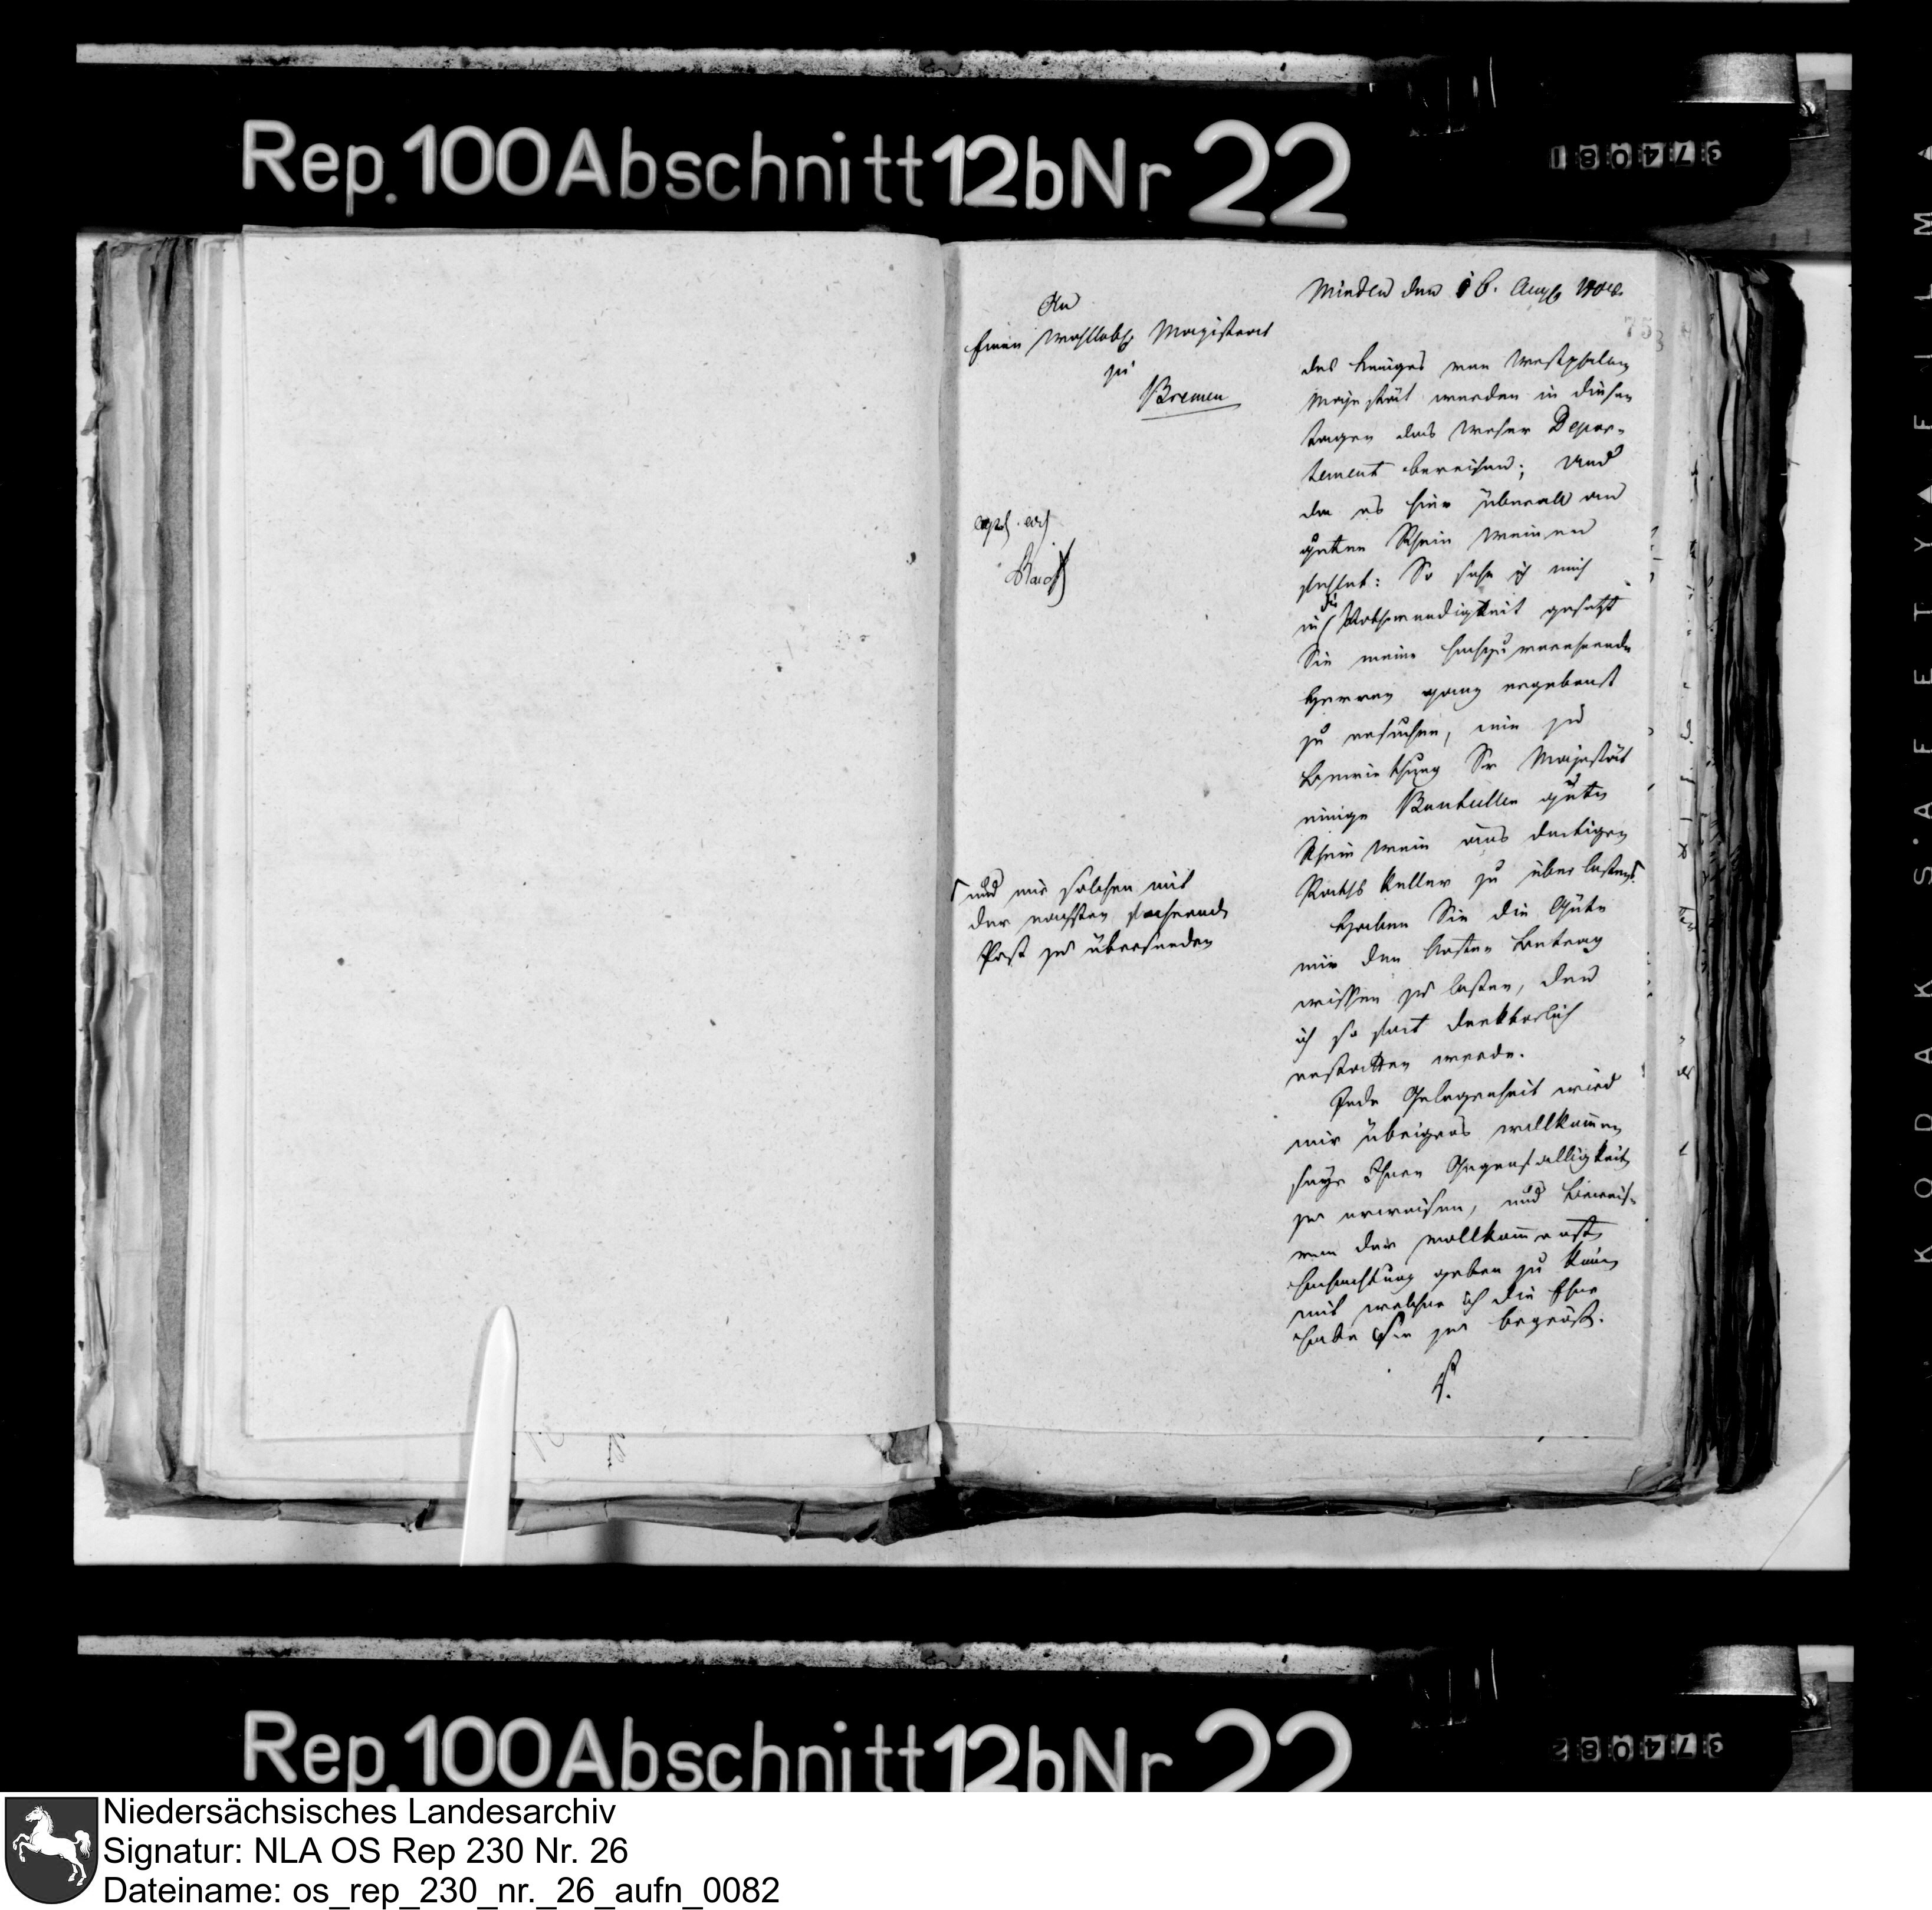 Rep. 100 Abschnitt 12b Nr 22
374081
An
Einen Wohllobl. Magistrat
zu
Bremen
exped. eod.
und mir solchen mit
der nächsten fahrenden
Post zu übersenden
Minden den 16. Aug
75
des Königes von Westphalen
Majestät werden in diesen
Tagen das Weser Depar-
tement bereisen; Und
da es hier überall an
guten Rhein Weinen
fehlet: So sehe ich mich
in die Nothwendigkeit gesetzt
Sie meine hochzuverehrende
Herren ganz ergebenst
zu ersuchen, mir zu
Bewirthung Sr Majestät
einige Bouteillen guten
Rhein Wein aus dortigen
Raths Keller zu überlassen
Haben Sie die Güte
mir den Kosten Betrag
wissen zu lassen, den
ich so fort dankbarlich
erstatten werde.
Jede Gelegenheit wird
mir übrigens willkommen
seyn Ihnen Gegenfälligkeit
zu erweisen, und Beweise
von der vollkommensten
Hochachtung geben zu können
mit welcher ich die Ehre
habe Sie zu begrüßen.
KODAK SAFETY FILM
Rep. 100 Abschnitt 12b Nr 22
374082
Niedersächsisches Landesarchiv
Signatur: NLA OS Rep 230 Nr. 26
Dateiname: os_rep_230_nr._26_aufn_0082